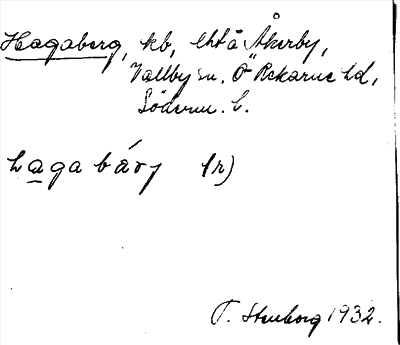 Hagaberg, kb, lht å Åkerby,
Vallby sn. Ö Rekarne hd,
Söderm. l.
hagabárj 1r)
T. Stenborg 1932.